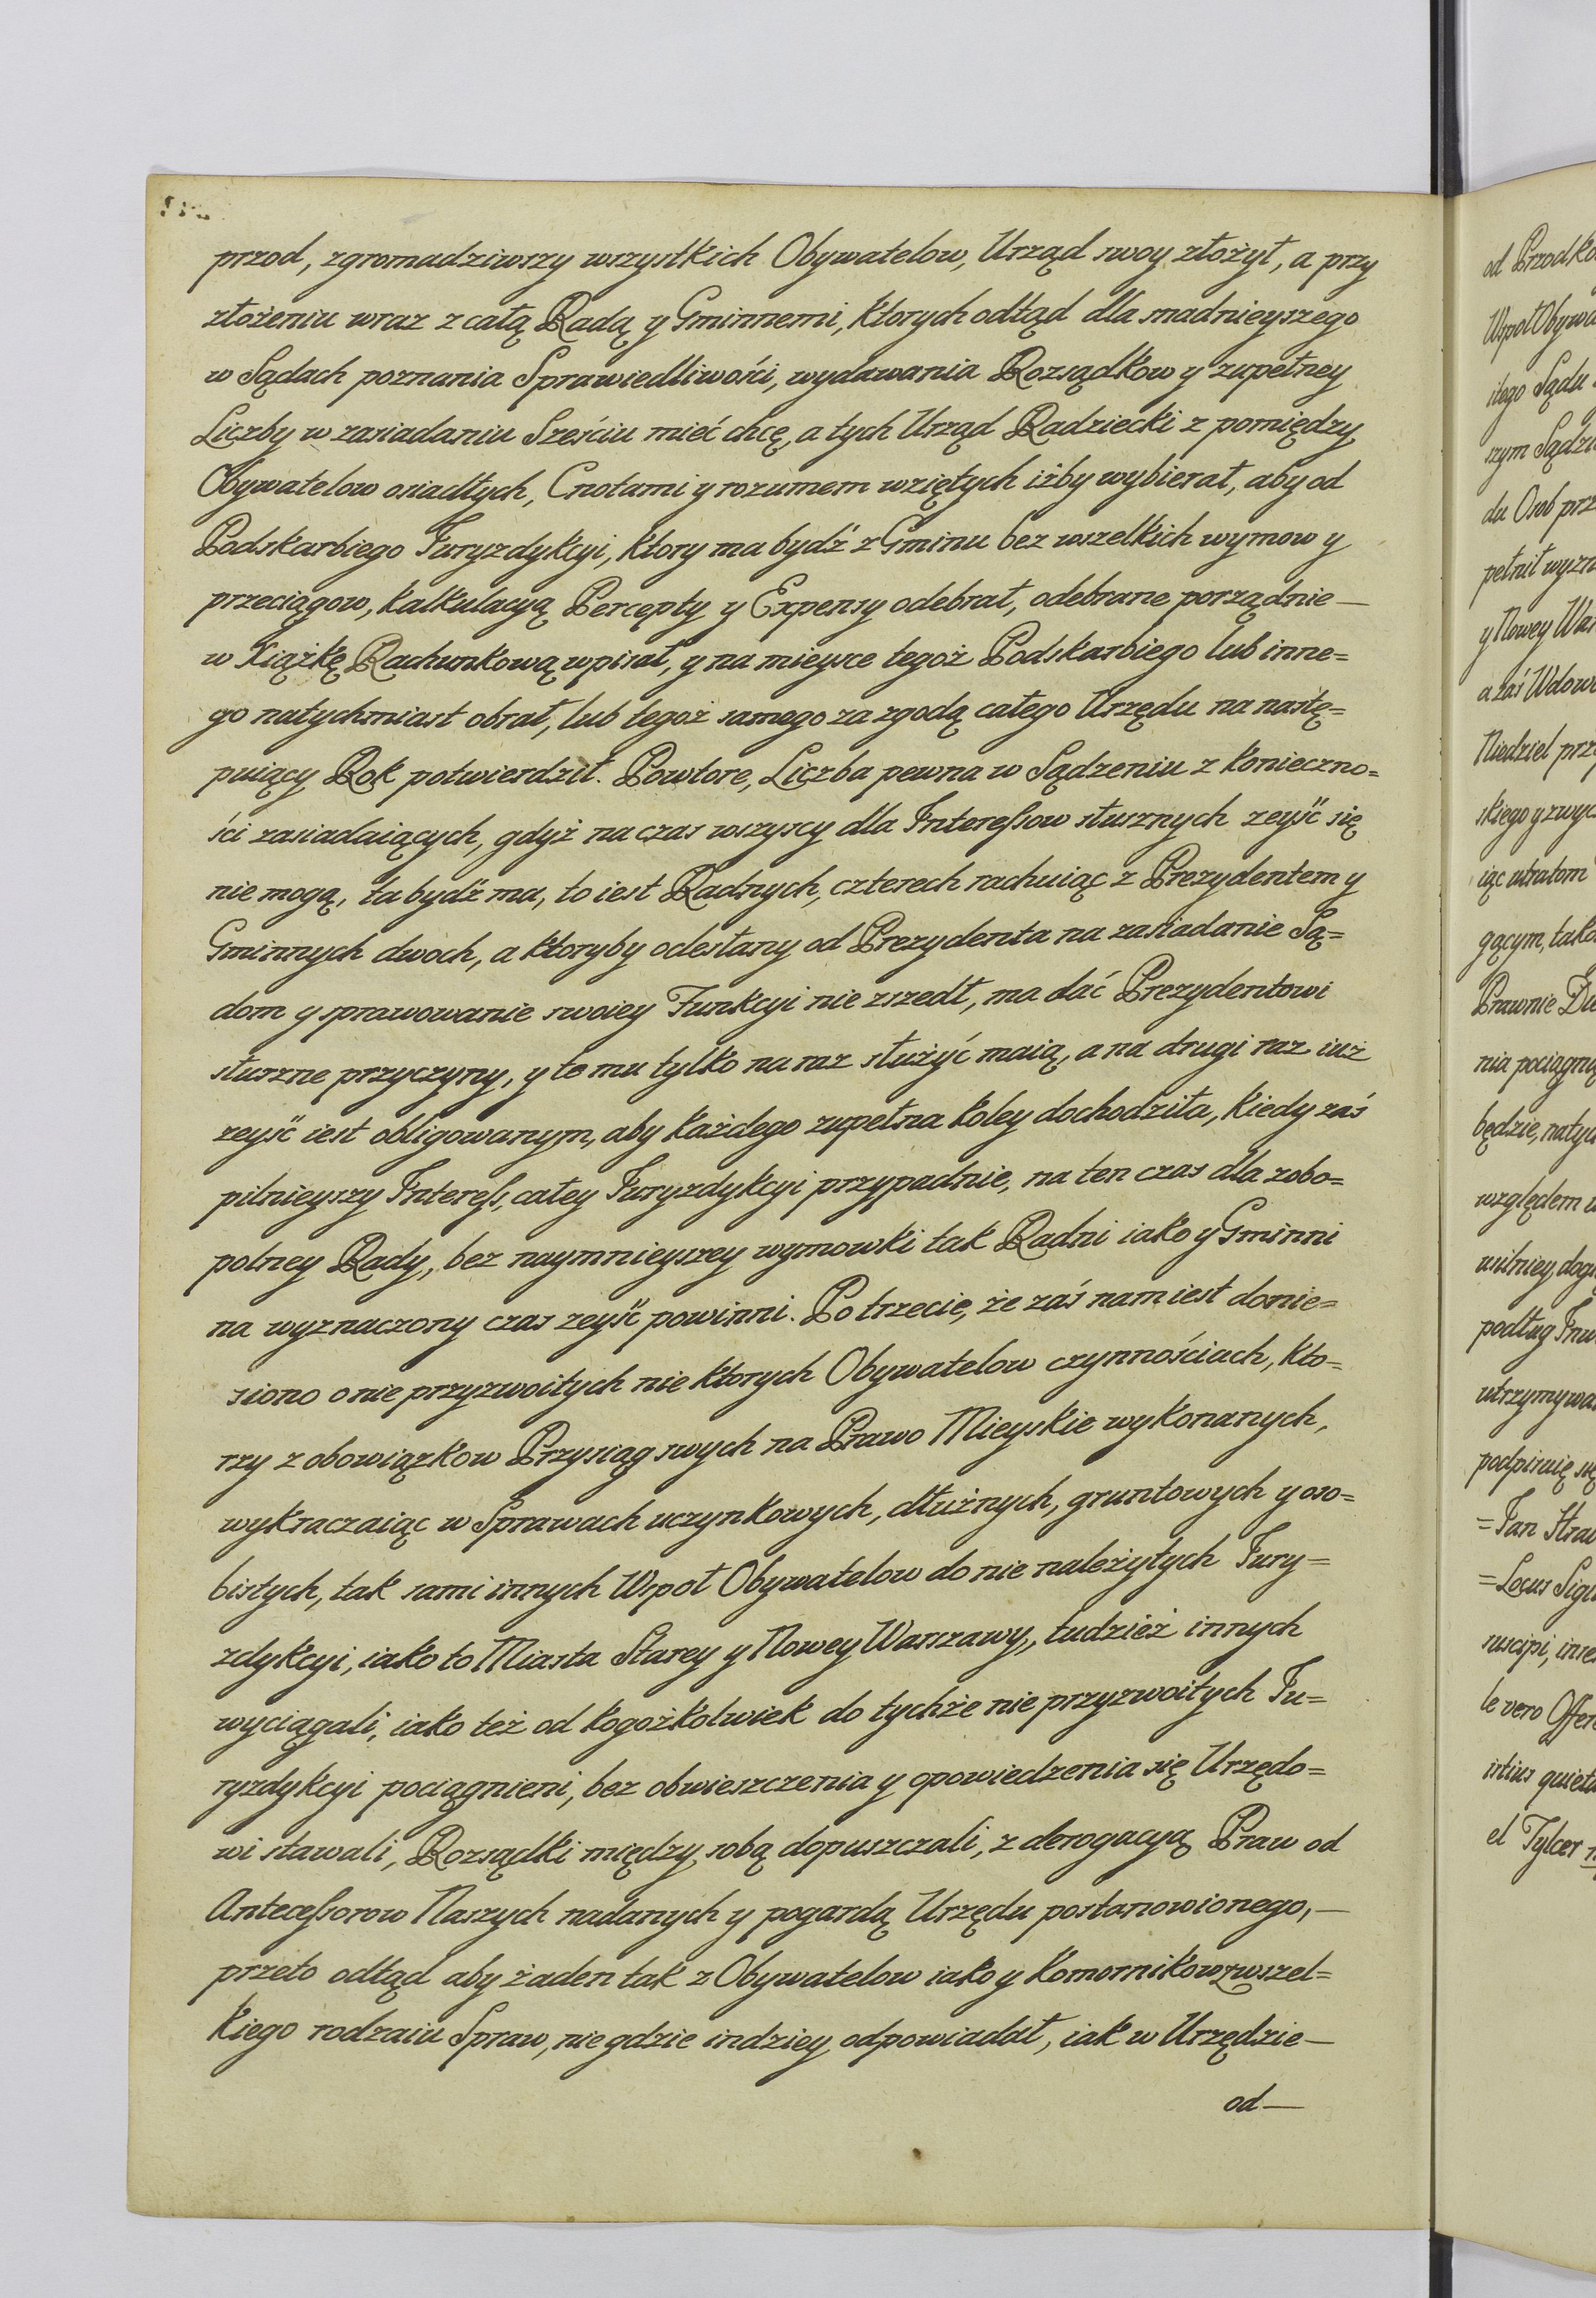 przod, zgromadziwszy wszystkich Obywatelow, Urząd swoy złożył, a przy
złożeniu wraz z całą Radą y Gminnemi, ktorych odtąd dla snadnieyszego
w Sądach poznania Sprawiedliwości, wydawania Rozsądkow y zupełney
Liczby w zasiadaniu Sześciu mieć chcę, a tych Urząd Radziecki z pomiędzy
Obywatelow osiadłych, Cnotami y rozumem wziętych iżby wybierał, aby od
Podskarbiego Juryzdykcyi, ktory ma bydź z Gminu bez wszelkich wymow y
przeciągow, kalkulacyą Percepty y Expensy odebrał, odebrane porządnie —
w Xiążkę Rachunkową wpisał, y na mieysce tegoż Podskarbiego lub inne=
go natychmiast obrał, lub tegoż samego za zgodą całego Urzędu na nastę=
puiący Rok potwierdził. Powtore, Liczba pewna w Sądzeniu z konieczno=
ści zasiadaiących, gdyż na czas wszyscy dla Interessow słusznych zeyść się
nie mogą, ta bydź ma, to iest Radnych, czterech rachuiąc z Prezydentem y
Gminnych dwoch, a ktoryby odesłany od Prezydenta na zasiadanie Są=
dom y sprawowanie swoiey Funkcyi nie zszedł, ma dać Prezydentowi
słuszne przyczyny, y te mu tylko na raz służyć maią, a na drugi raz iuż
zeyść iest obligowanym, aby każdego zupełna koley dochodziła, kiedy zaś
pilnieyszy Interess, całey Juryzdykcyi przypadnie, na ten czas dla zobo=
polney Rady, bez naymnieyszey wymowki tak Radni iako y Gminni
na wyznaczony czas zeyść powinni. Po trzecie, że zaś nam iest donie=
siono o nie przyzwoitych nie ktorych Obywatelow czynnościach, kto=
rzy z obowiązkow Przysiąg swych na Prawo Mieyskie wykonanych,
wykraczaiąc w Sprawach uczynkowych, dłużnych, gruntowych y oso=
bistych, tak sami innych Wspoł Obywatelow do nie należytych Jury=
zdykcyi, iako to Miasta Starey y Nowey Warszawy, tudzież innych
wyciągali, iako też od kogożkolwiek do tychże nie przyzwoitych Ju=
ryzdykcyi pociągnieni, bez obwieszczenia y opowiedzenia się Urzędo=
wi stawali, Rozsądki między sobą dopuszczali, z derogacyą Praw od
Antecessorow Naszych nadanych y pogardą Urzędu postanowionego, —
przeto odtąd aby żaden tak z Obywatelow iako y Komornikow z wszel=
kiego rodzaiu Spraw, nie gdzie indziey odpowiadał, iak w Urzędzie —
od —
od Przodko
Wspoł Obywa
iłego Sądu
szym Sądzi
du Osob prz
pełnił wyzn
y Nowey War
a zaś Wdowo
Niedziel prz
skiego y zwyc
iąc utratom
gącym, tako
Prawnie Du
nia pociągną
będzie, natyc
względem u
usilniey dog
podług Inw
utrzymywa
podpisuię się
=Jan Stra
=Locus Sigi
suscipi, inse
le vero Offer
istius quieta
el Tylcer